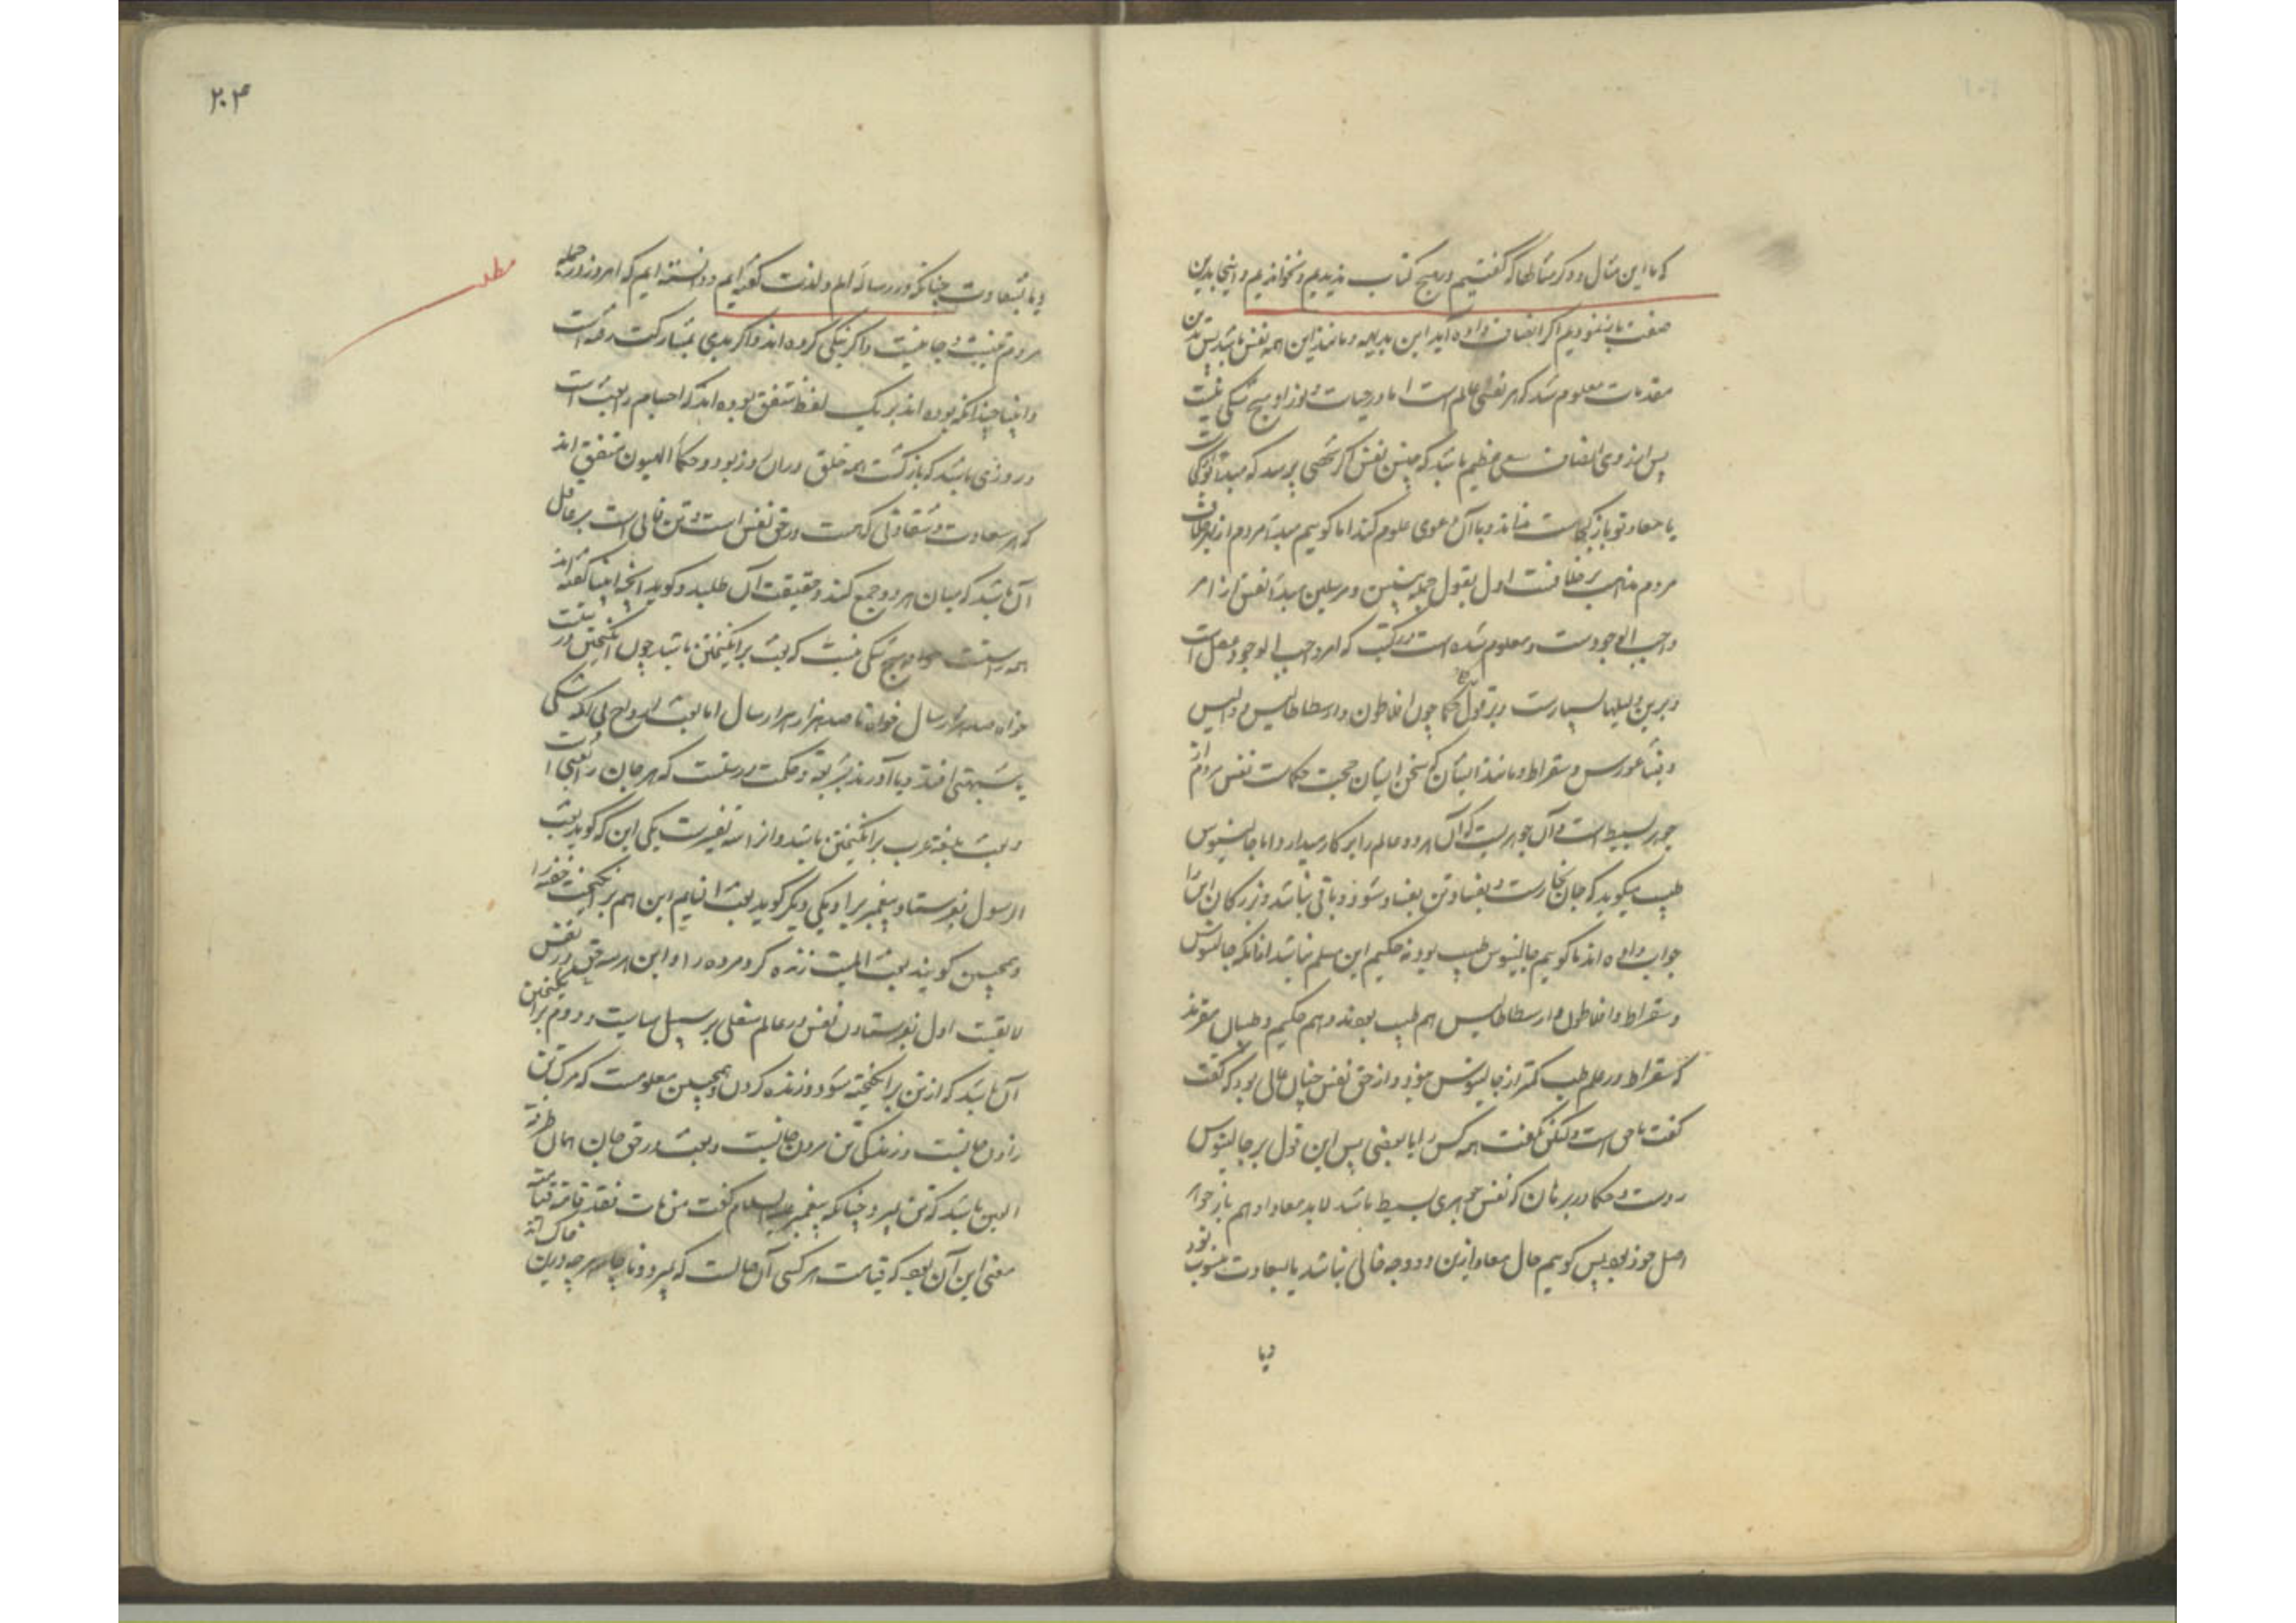 که ما این مثال و دیگر مثالها که گفتیم در هیچ کتاب ندیدیم و نخواندیم و اینجا بدین
صفت باز نمودیم اگر انصاف داده آید این بدیهه و مانند این همه نفس باشد پس بدین
مقدمات معلوم شد که هر نفسی عالم است اما در حیات و نور او هیچ شکی نیست
پس از روی انصاف سعی عظیم باشد که چنین نفس اگر شخصی پرسد که مبدأ تو کجاست
یا معاد تو باز کجاست نداند و با آن دعوی علوم کند اما گوییم مبدأ مردم از
مردم مذاهب بر خلافست اول بقول جمله نبیین و مرسلین مبدأ نفس از امر
واجب الوجودست و معلوم شده است در کتب که امر واجب الوجود عقل است
و برین دلیلها بسیارست و بر قول حکما چون افلاطون و ارسطاطالیس و والیس
و فیثاغورس و سقراط و مانند ایشان که سخن ایشان حجت حکماست نفس مردم از
جوهر بسیط است و آن جوهریست که آن هر دو عالم را بر کار میدارد و اما جالینوس
طبیب میگوید که جان بخارست و بفساد تن بفساد شود و باقی نباشد و بزرگان این را
جواب داده اند تا گوییم جالینوس طبیب بود نه حکیم این مسلم نباشد از آنکه جالینوس
و سقراط و افلاطون و ارسطاطالیس هم طبیب بودند و هم حکیم و طبیبان مقرند
که سقراط در علم طب کمتر از جالینوس نبود و از حق نفس چنان عالی بود که گفت
گفت نامی است ولیکن نگفت هر کس را با بعضی پس این قول بر جالینوس
ردست و حکما در برهان که نفس جوهری بسیط باشد لابد معاد او هم باز جوار
اصل خود بود پس گوییم حال معاد ازین دو وجه خالی نباشد یا بسعادت منسوب بود
ویا
۲۰۴
مطلب
ویا بشقاوت چنانکه در رساله الم و لذت گفته ایم و دانسته ایم که امروز در جمله
مردم غیبت و جانیست و اگر نیکی کرده اند و اگر بدی بمشارکت رفته است
و انبیا چندانکه بوده اند بر یک لفظ متفق بوده اند که اجسام را بعث است
و روزی باشد که بازگشت همه خلق در آن روز بود و حکماء الهیون متفق اند
که هر سعادت و شقاوتی که هست در حق نفس است و تن فانی است پس عاقل
آن باشد که میان هر دو جمع کند و حقیقت آن طلبد و گوید آنچه انبیا گفته اند
همه راست و هیچ شکی نیست که بعث برانگیختن باشد چون انگیختن در تنست
خواه صد هزار سال خواه تا صد هزار هزار سال اما بعث ارواح بی آنکه شکی
یا شبهتی افتد و یا آورند بشریعت و حکمت درستست که هر جان را بعثی است
و بعث بلغت عرب برانگیختن باشد و آنرا سه تفسیرست یکی این که گوید بعث
الرسول بفرستاد پیغمبر را و یکی دیگر گوید بعث النایم این هم برانگیخت خفته را
و همچنین گویند بعث المیت زنده کرد مرده را و این هر سه حق در نفس
لایقست اول بفرستادن نفس در عالم سفلی بر سبیل سیاست و دوم برانگیختن
آن باشد که از تن برانگیخته شود و زنده کردن و همچنین معلومست که مرگ تن
زادن جانست و زندگی تن مردن جانست و بعث در حق جان همان طریقه
البین باشد که تن بمیرد چنانکه پیغمبر علیه السلام گفت من مات فقد قامت قیامته
معنی این آن بود که قیامت هر کسی آن حالت که بمیرد و ناچار هر چه درین خاک اند